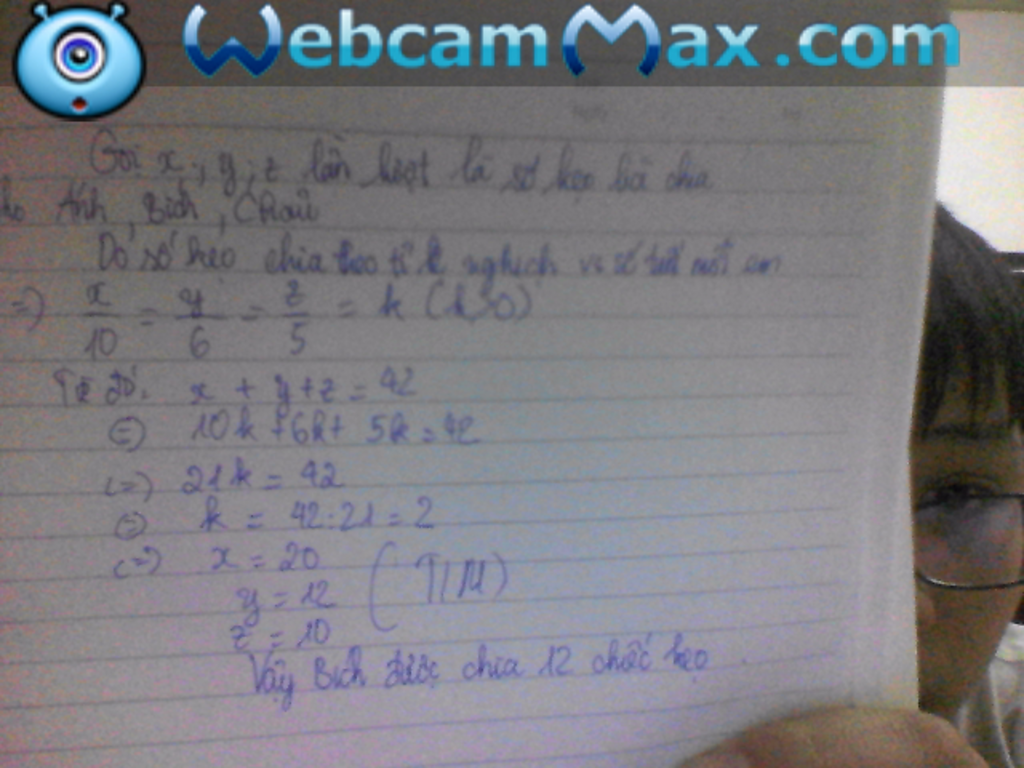 WebcamMax.com
Gọi x; y; z lần lượt là số kẹo bà chia
cho Ánh, Bích, Châu
Do số kẹo chia theo tỉ lệ nghịch vs số tuổi mỗi em
=> x/10 = y/6 = z/5 = k (k>0)
Từ đó: x + y + z = 42
(=) 10k + 6k + 5k = 42
(=) 21k = 42
(=) k = 42:21 = 2
(=) x = 20
y = 12 (T/M)
z = 10
Vậy Bích được chia 12 chiếc kẹo